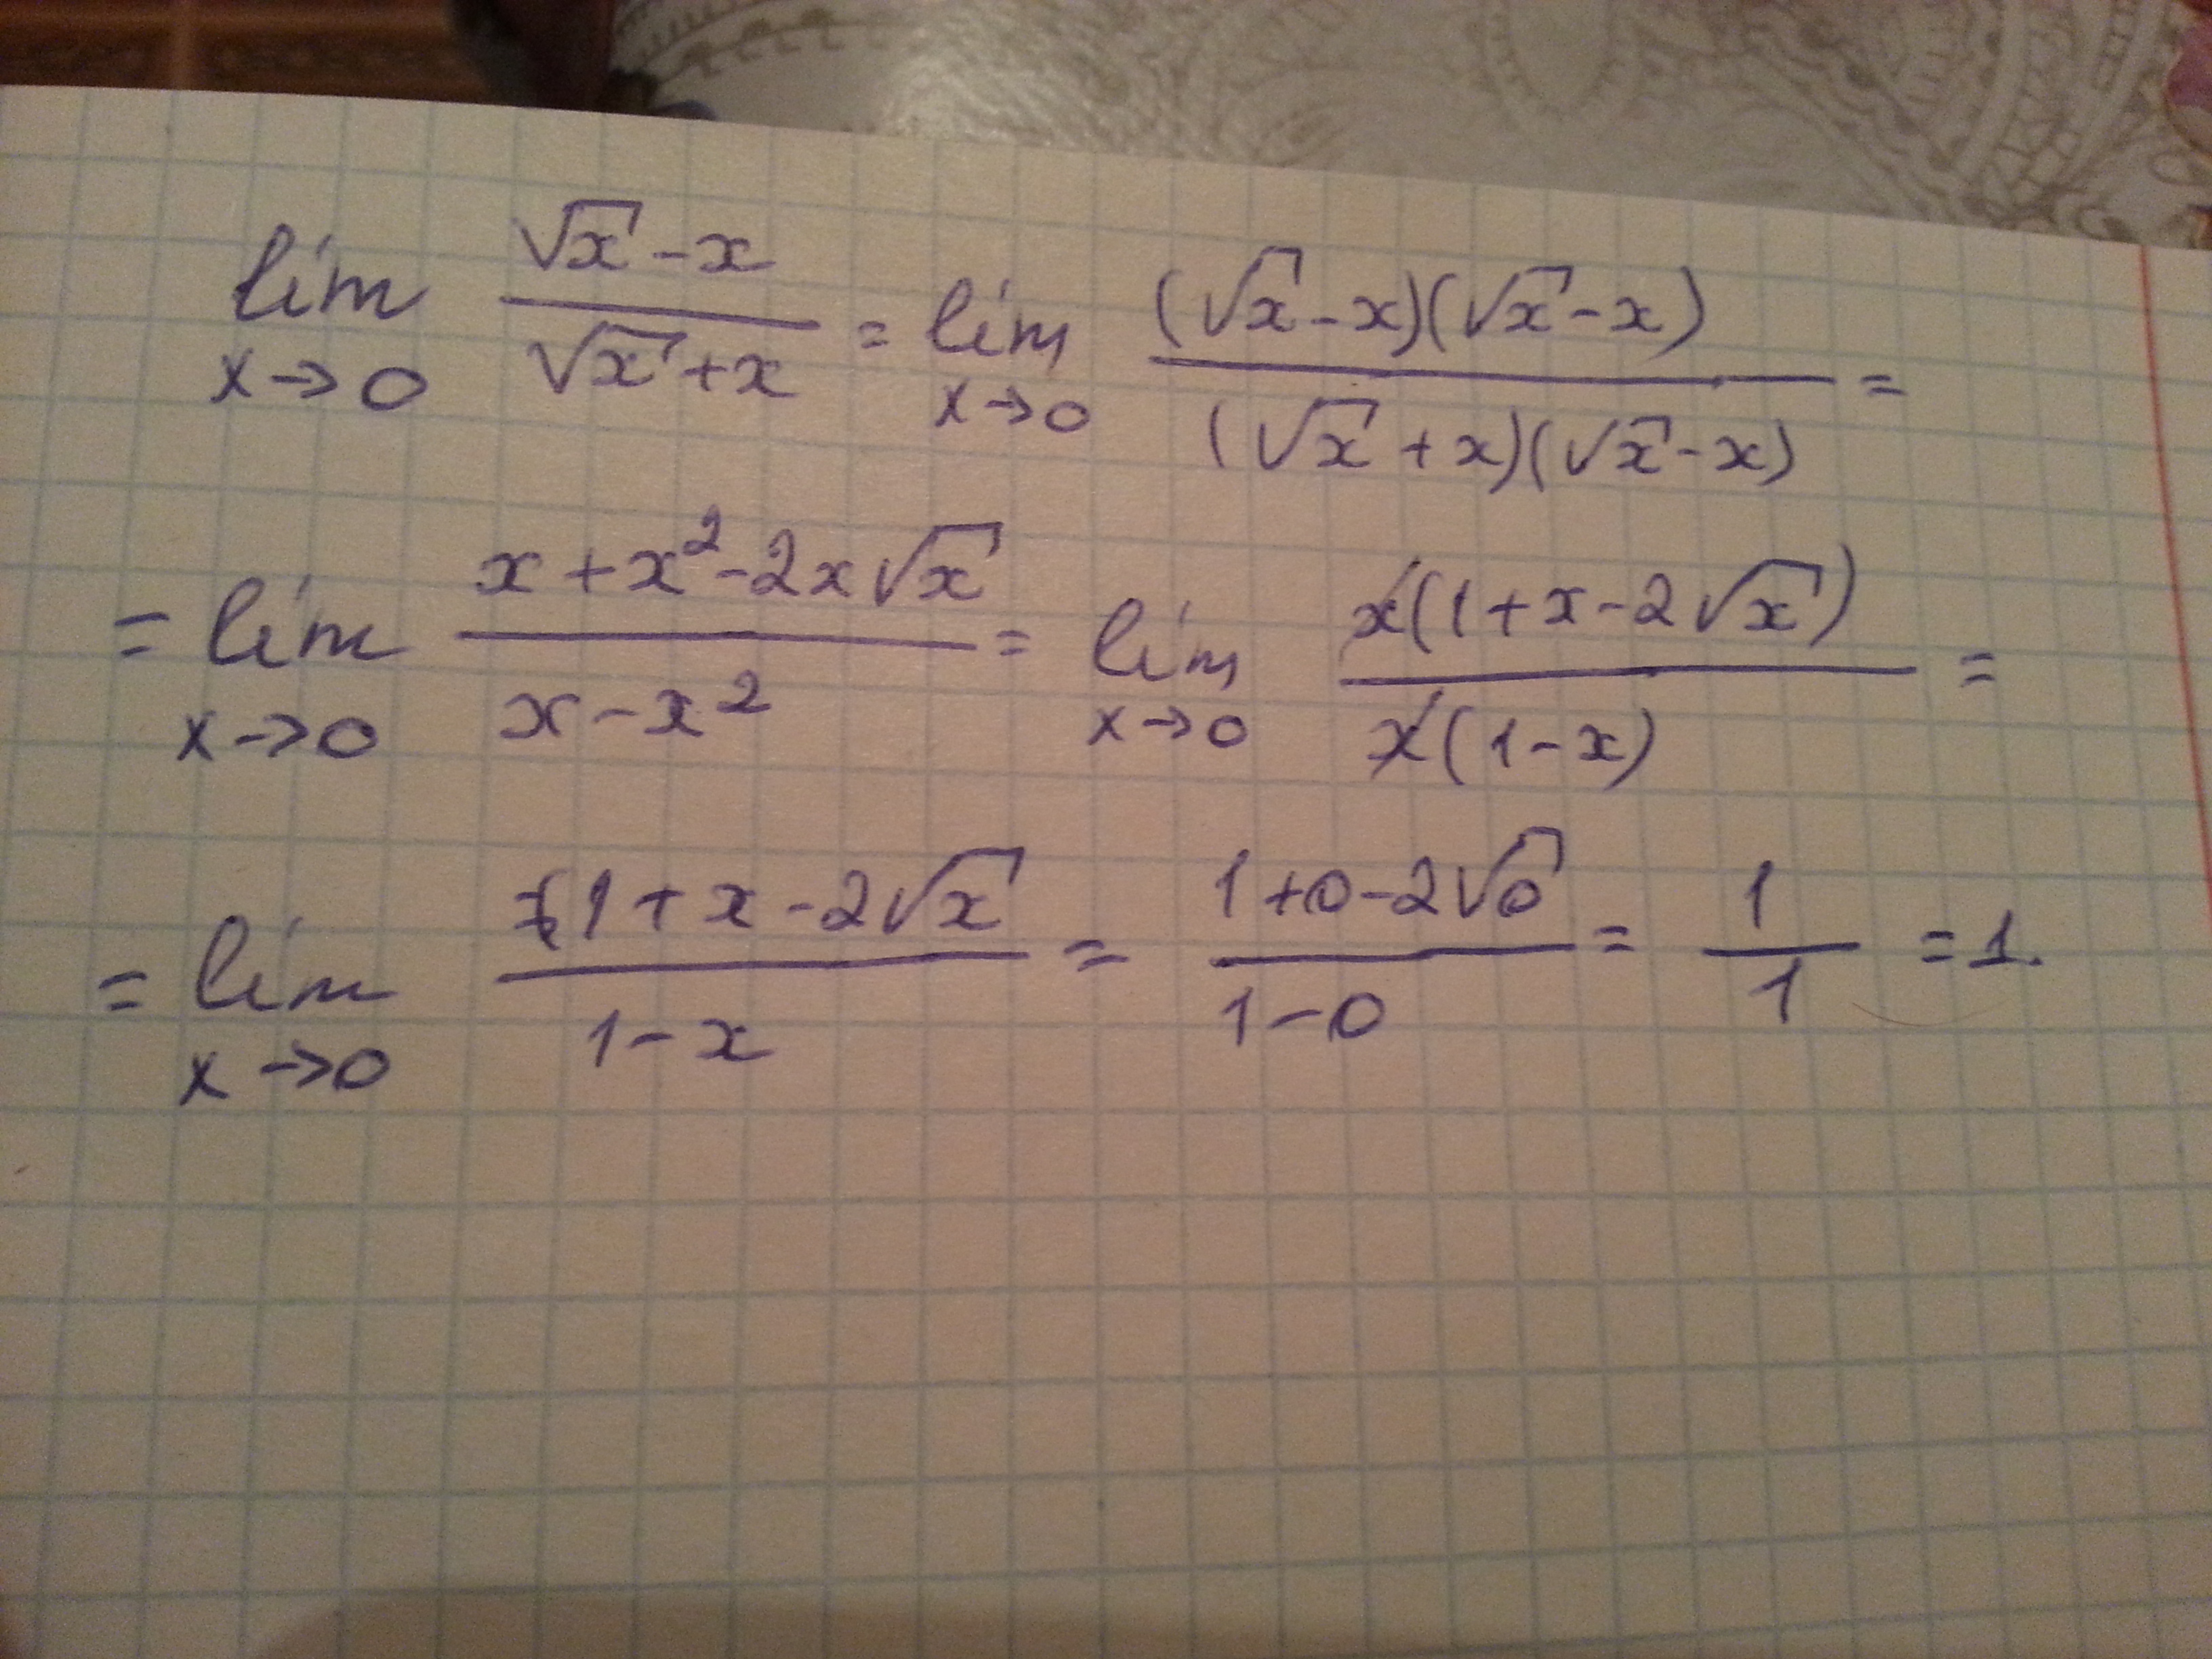 lim x→0 (√x - x)/(√x + x) = lim x→0 ((√x - x)(√x - x))/((√x + x)(√x - x)) =
= lim x→0 (x + x² - 2x√x)/(x - x²) = lim x→0 (x(1 + x - 2√x))/(x(1 - x)) =
= lim x→0 (1 + x - 2√x)/(1 - x) = (1 + 0 - 2√0)/(1 - 0) = 1/1 = 1.